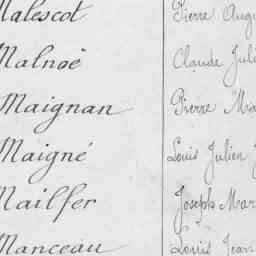 Malescot Pierre
Malnoë Claude
Maignan Pierre
Maigné Louis Julien
Mailfer Joseph
Manceau Louis Jean